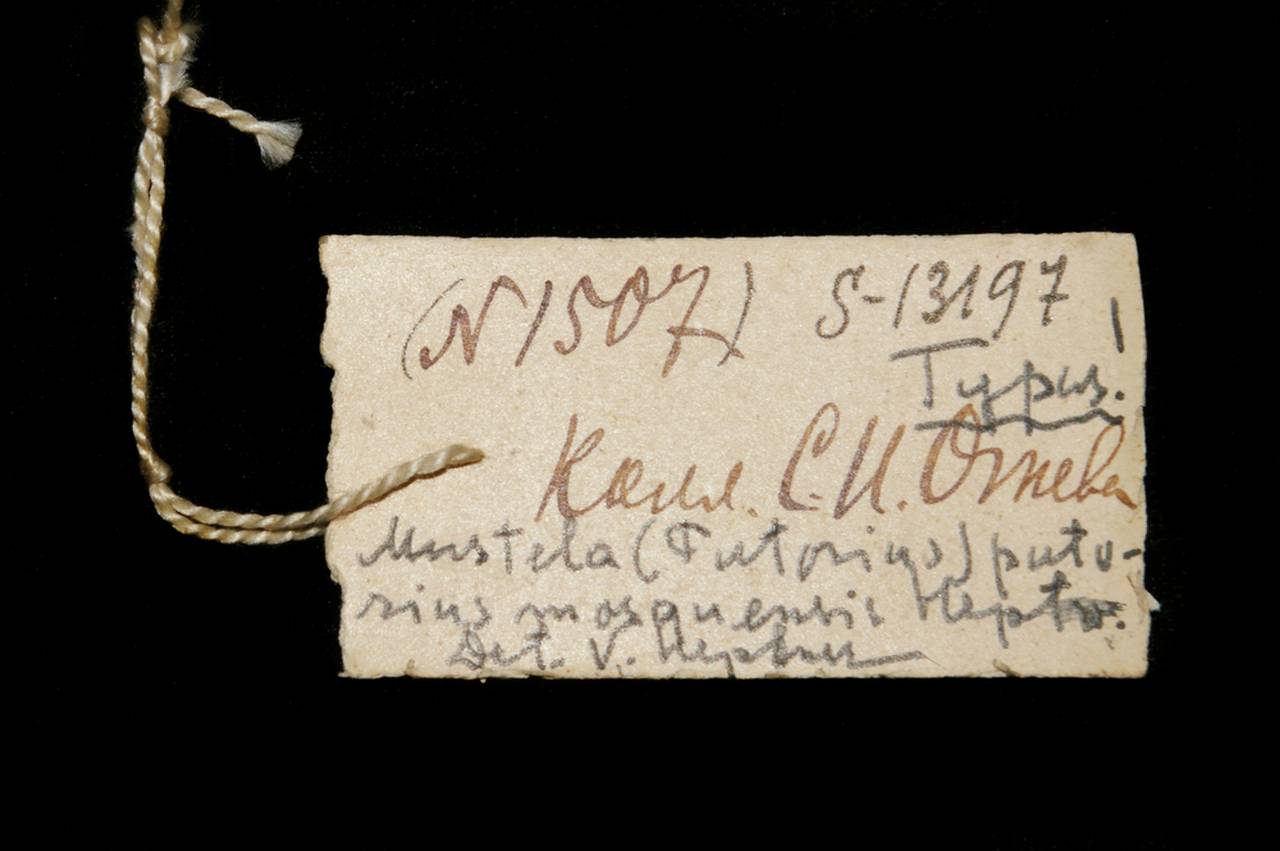 (N 1507) S-13197
Typus. !
Колл. С. И. Огнева
Mustela (Putorius) puto-
rius mosquensis Heptn.
Det. V. Heptner